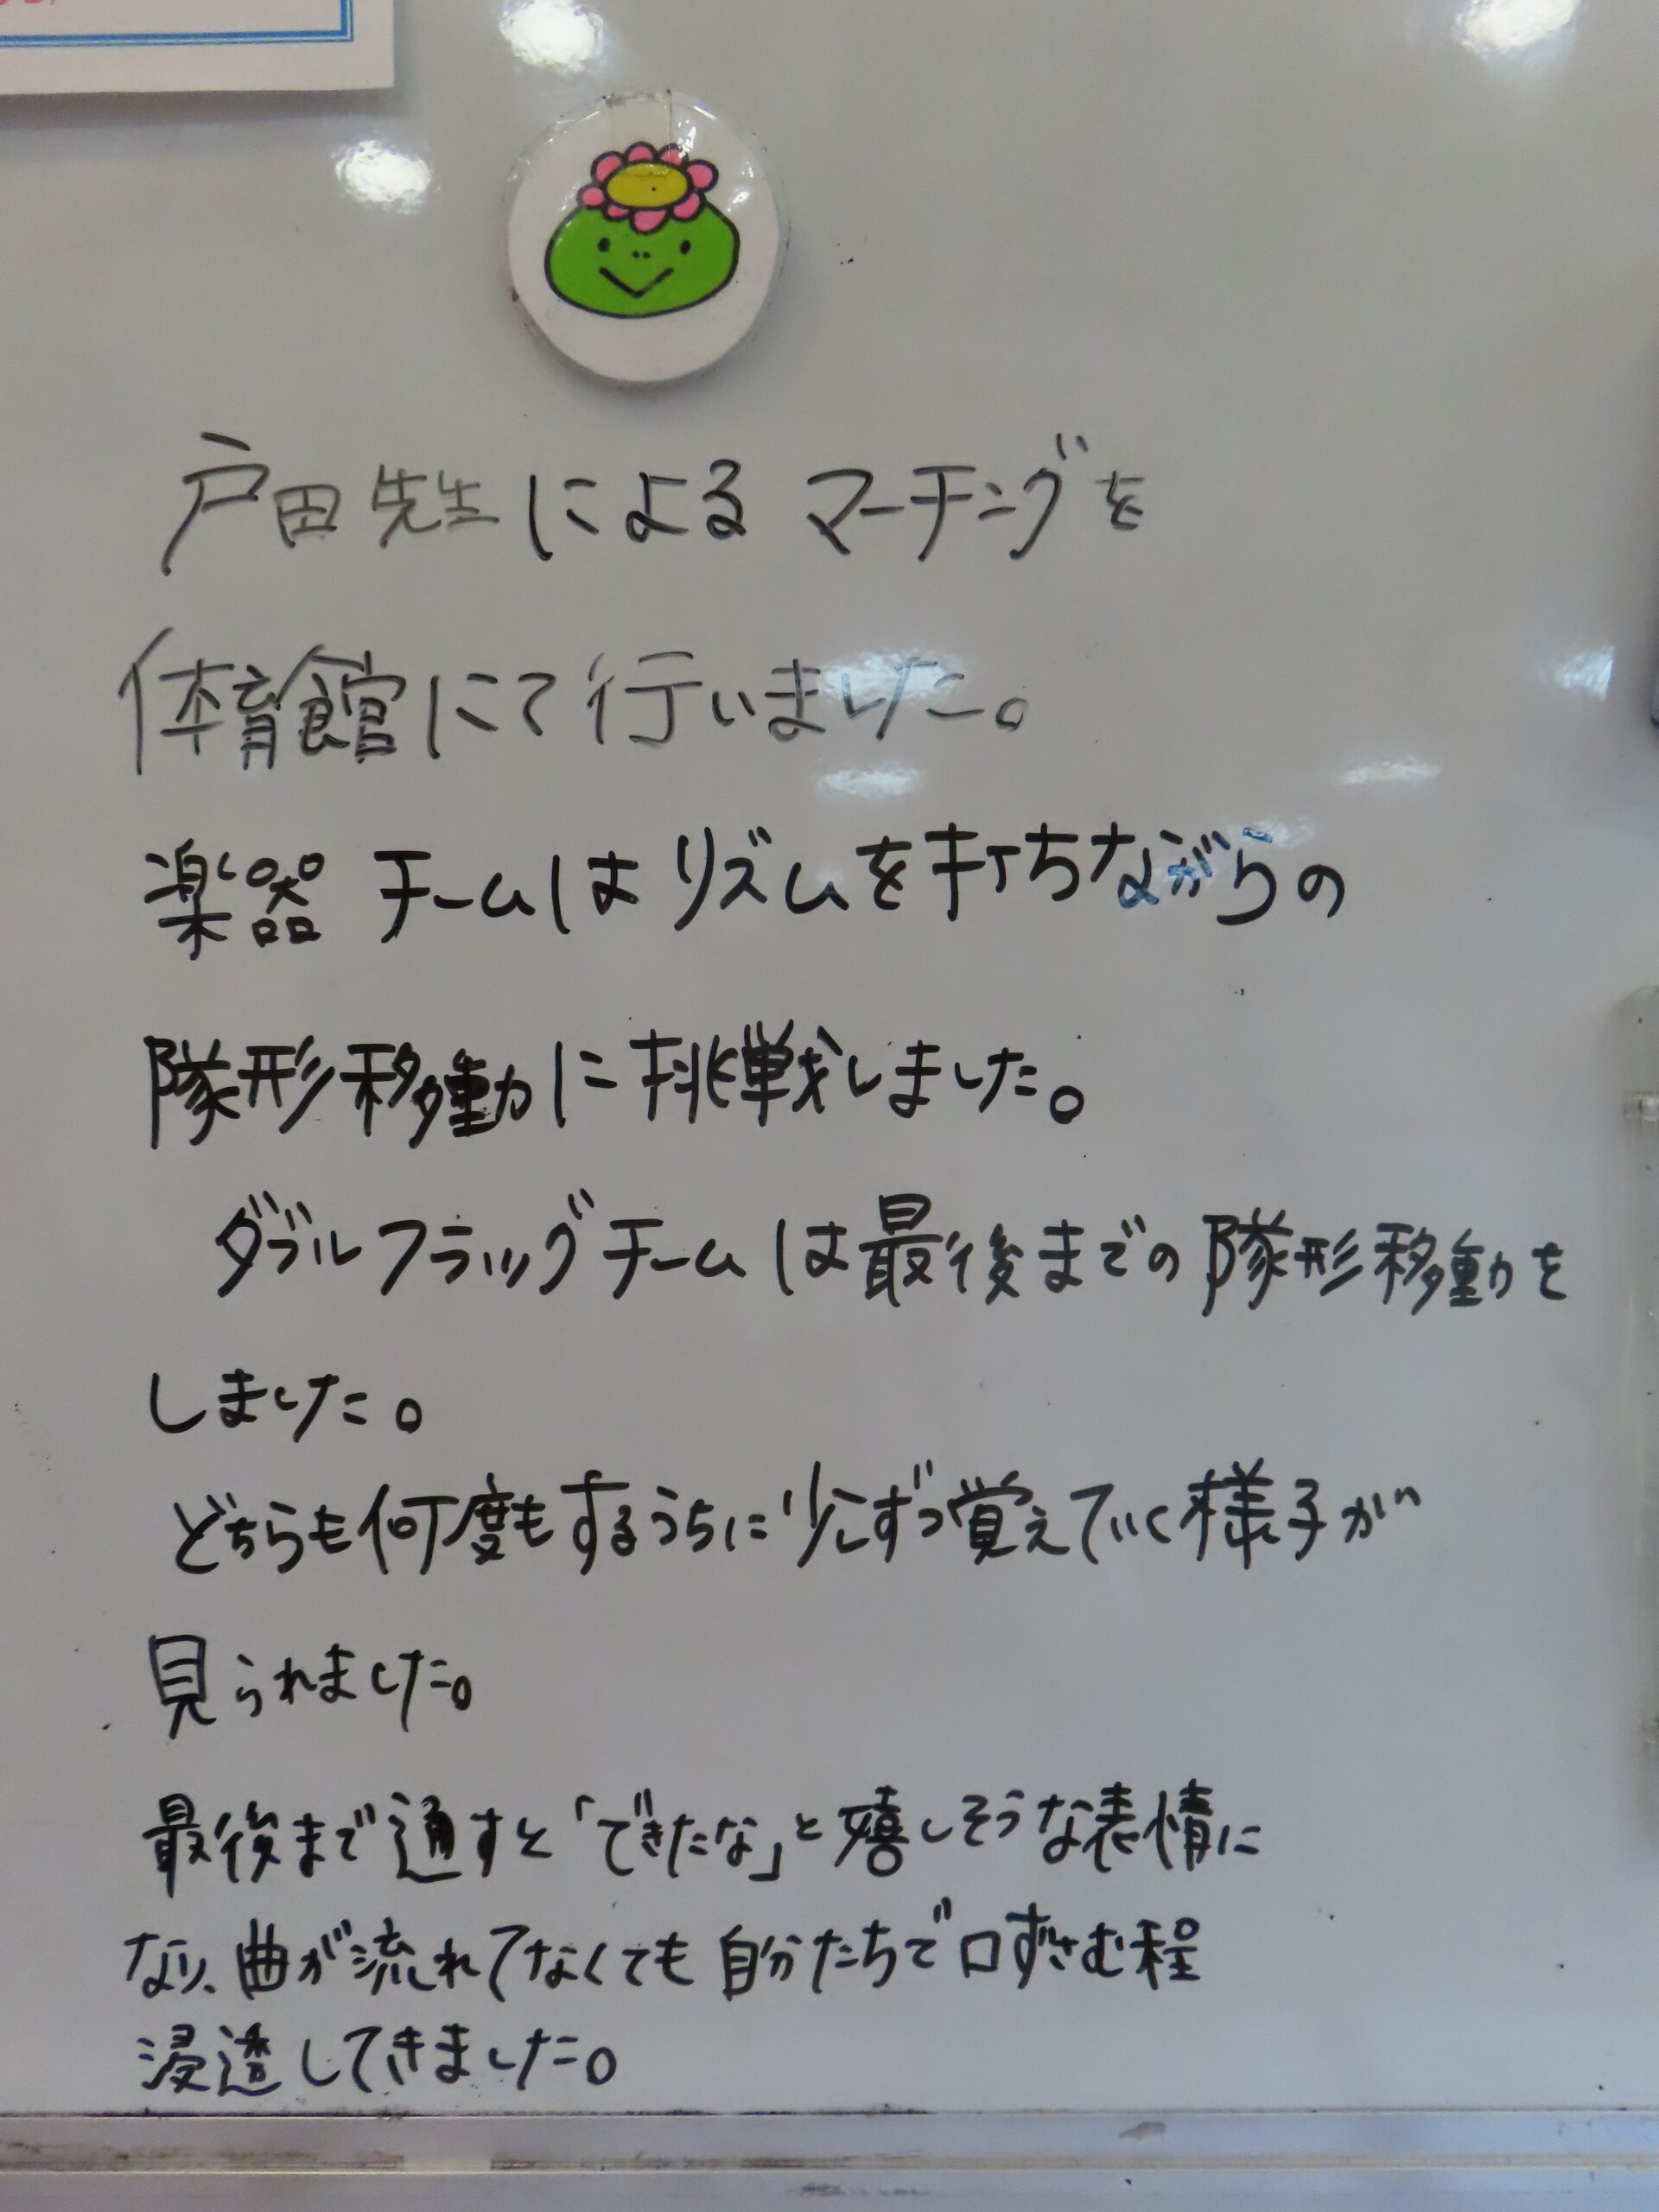 戸田先生によるマーチングを
体育館にて行いました。
楽器チームはリズムを打ちながらの
隊形移動に挑戦しました。
ダブルフラッグチームは最後までの隊形移動を
しました。
どちらも何度もするうちに少しずつ覚えていく様子が
見られました。
最後まで通すと「できたな」と嬉しそうな表情に
なり、曲が流れてなくても自分たちで口ずさむ程
浸透してきました。